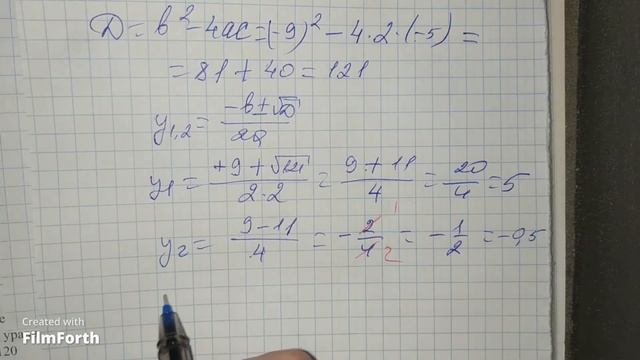 D = b² - 4ac = (-9)² - 4·2·(-5) =
= 81 + 40 = 121
y₁,₂ = (-b ± √D)/(2a)
y₁ = (+9 + √121)/(2·2) = (9 + 11)/4 = 20/4 = 5
y₂ = (9 - 11)/4 = -2/4 = -1/2 = -0,5
Created with
FilmForth
е
ура
120